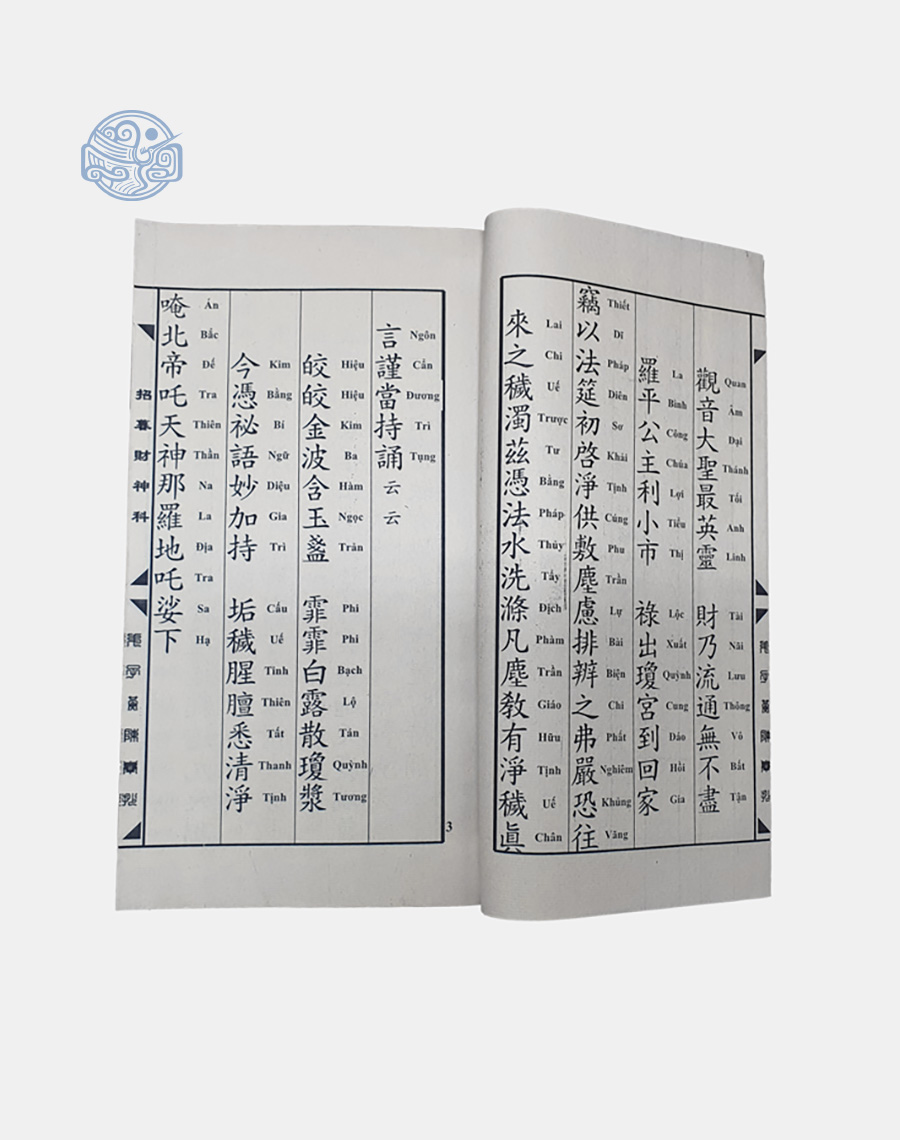 觀音大聖最英靈 財乃流通無不盡
Quan Âm Đại Thánh Tối Anh Linh Tài Nãi Lưu Thông Vô Bất Tận
羅平公主利小市 祿出瓊宮到回家
La Bình Công Chúa Lợi Tiểu Thị Lộc Xuất Quỳnh Cung Đáo Hồi Gia
竊以法筵初啓淨供敷塵慮排辦之弗嚴恐往
Thiết Dĩ Pháp Diên Sơ Khải Tịnh Cúng Phu Trần Lự Bài Biện Chi Phất Nghiêm Khủng Vãng
來之穢濁茲憑法水洗滌凡塵教有淨穢眞
Lai Chi Uế Trược Tư Bằng Pháp Thủy Tẩy Địch Phàm Trần Giáo Hữu Tịnh Uế Chân
言謹當持誦云云
Ngôn Cẩn Đương Trì Tụng
皎皎金波含玉盞 霏霏白露散瓊漿
Hiệu Hiệu Kim Ba Hàm Ngọc Trản Phi Phi Bạch Lộ Tán Quỳnh Tương
今憑祕語妙加持 垢穢腥膻悉清淨
Kim Bằng Bí Ngữ Diệu Gia Trì Cấu Uế Tinh Thiên Tất Thanh Tịnh
唵北帝吒天神那羅地吒娑下
Án Bắc Đế Tra Thiên Thần Na La Địa Tra Sa Hạ
招募財神科
3